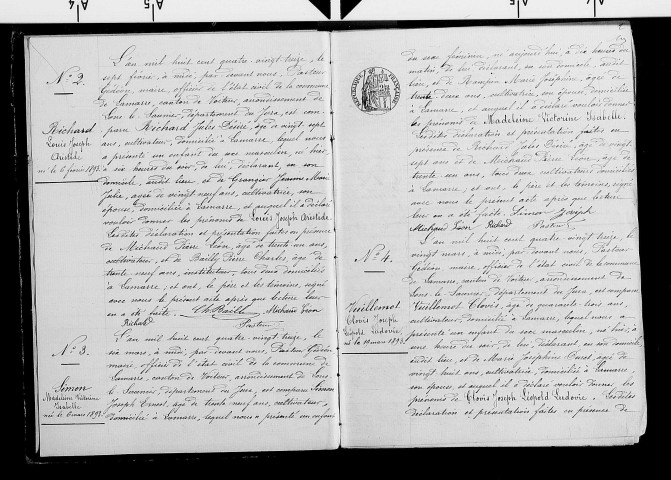 N° 2.
Richard
Louis Joseph
Aristide
né le 6 février 1893
L'an mil huit cent quatre-vingt treize, le
sept février, à midi, par devant nous, Pasteur
Gédéon, maire, officier de l'état civil de la commune
de Lamarre, canton de Voiteur, arrondissement de
Lons le Saunier, département du Jura, est com-
paru Richard Jules Désiré, âgé de vingt sept
ans, cultivateur, domicilié à Lamarre, lequel nous
a présenté un enfant du sexe masculin, né hier,
à six heures du soir, de lui, déclarant, en son
domicile, audit lieu, et de Grangier Jeanne Marie
Julie, âgée de vingt neuf ans, cultivatrice, son
épouse, domiciliée à Lamarre, et auquel il a déclaré
vouloir donner les prénoms de Louis Joseph Aristide
Lesdites déclaration et présentation faites en présence
de Michaud Pierre Léon, âgé de trente un ans,
cultivateur, et de Bailly Pierre Charles, âgé de
trente neuf ans, instituteur, tous deux domiciliés
à Lamarre, et ont, le père et les témoins, signé
avec nous le présent acte après que lecture leur
en a été faite. Ch Bailly Michaud Léon
Richard Pasteur
N° 3.
Simon
Madeleine Victorine
Isabelle
née le 6 mars 1893
L'an mil huit cent quatre-vingt treize, le
six mars, à midi, par devant nous, Pasteur Gédéon
maire, officier de l'état civil de la commune de
Lamarre, canton de Voiteur, arrondissement de Lons
le Saunier, département du Jura, est comparu Simon
Joseph Ernest, âgé de trente neuf ans, cultivateur,
domicilié à Lamarre, lequel nous a présenté un enfant
du sexe féminin, né aujourd'hui, à dix heures du
matin, de lui, déclarant, en son domicile, audit
lieu, et de Marie Joséphine, âgée de
trente deux ans, cultivatrice, son épouse, domiciliée
à Lamarre, et auquel il a déclaré vouloir donner
les prénoms de Madeleine Victorine Isabelle.
Lesdites déclaration et présentation faites en
présence de Richard Jules Désiré, âgé de vingt
sept ans et de Michaud Pierre Léon, âgé de
trente un ans, tous deux cultivateurs domiciliés
à Lamarre, et ont, le père et les témoins, signé
avec nous le présent acte après que lecture
leur en a été faite. Simon Joseph
Michaud Léon Richard Pasteur
RÉPUBLIQUE FRANÇAISE
N° 4.
Vuillemot
Clovis Joseph
Léopold Ludovic
né le mars 1893
L'an mil huit cent quatre-vingt treize, le
vingt mars, à midi, par devant nous, Pasteur
Gédéon maire, officier de l'état civil de la commune
de Lamarre, canton de Voiteur, arrondissement de
Lons-le-Saunier, département du Jura, est comparu
Vuillemot Clovis, âgé de quarante-trois ans,
cultivateur, domicilié à Lamarre, lequel nous a
présenté un enfant du sexe masculin, né hier, à
une heure du soir, de lui déclarant, en son domicile
audit lieu, et de Marie Joséphine âgée de
vingt huit ans, cultivatrice, domiciliée à Lamarre,
son épouse, et auquel il a déclaré vouloir donner les
prénoms de Clovis Joseph Léopold Ludovic. Lesdites
déclaration et présentation faites en présence de